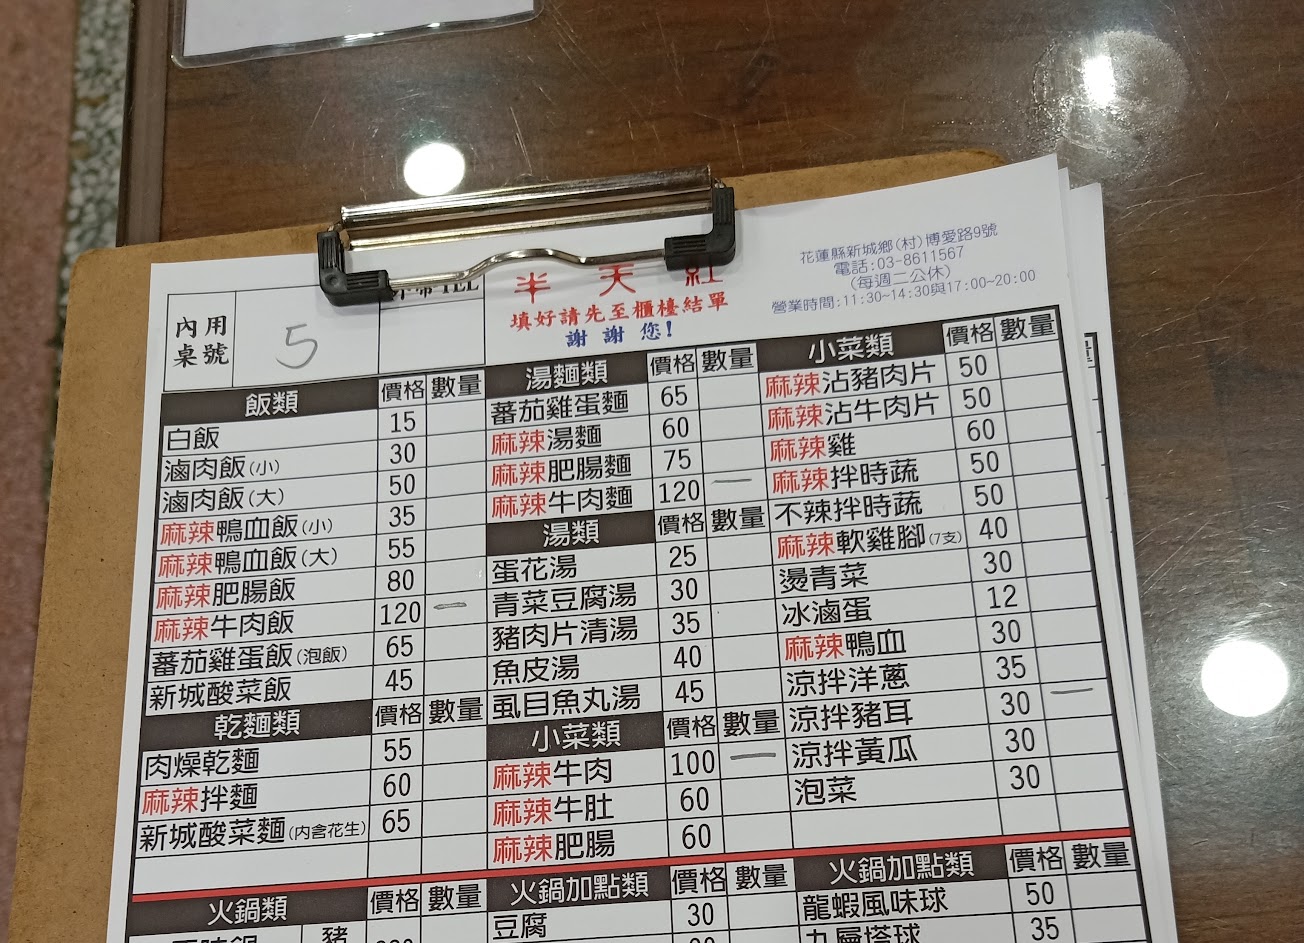 花蓮縣新城鄉(村)博愛路9號
電話:03-8611567
(每週二公休)
營業時間:11:30~14:30與17:00~20:00
半天紅
填好請先至櫃檯結單
謝謝您!
內用桌號 5
飯類 價格 數量
白飯 15
滷肉飯(小) 30
滷肉飯(大) 50
麻辣鴨血飯(小) 35
麻辣鴨血飯(大) 55
麻辣肥腸飯 80
麻辣牛肉飯 120 一
蕃茄雞蛋飯(泡飯) 65
新城酸菜飯 45
乾麵類 價格 數量
肉燥乾麵 55
麻辣拌麵 60
新城酸菜麵(內含花生) 65
湯麵類 價格 數量
蕃茄雞蛋麵 65
麻辣湯麵 60
麻辣肥腸麵 75
麻辣牛肉麵 120 一
湯類 價格 數量
蛋花湯 25
青菜豆腐湯 30
豬肉片清湯 35
魚皮湯 40
虱目魚丸湯 45
小菜類 價格 數量
麻辣牛肉 100 一
麻辣牛肚 60
麻辣肥腸 60
小菜類 價格 數量
麻辣沾豬肉片 50
麻辣沾牛肉片 50
麻辣雞 60
麻辣拌時蔬 50
不辣拌時蔬 50
麻辣軟雞腳(7支) 40
燙青菜 30
冰滷蛋 12
麻辣鴨血 30
涼拌洋蔥 35
涼拌豬耳 30 一
涼拌黃瓜 30
泡菜 30
火鍋類 價格 數量
豬
火鍋加點類 價格 數量
豆腐 30
火鍋加點類 價格 數量
龍蝦風味球 50
九層塔球 35